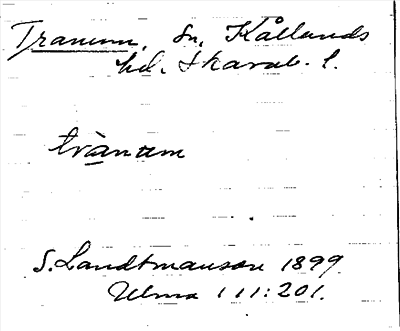 Tranum, sn, Kållands
hd. Skarab. l.
trànum
S. Landtmanson 1899
Ulma 111:201.